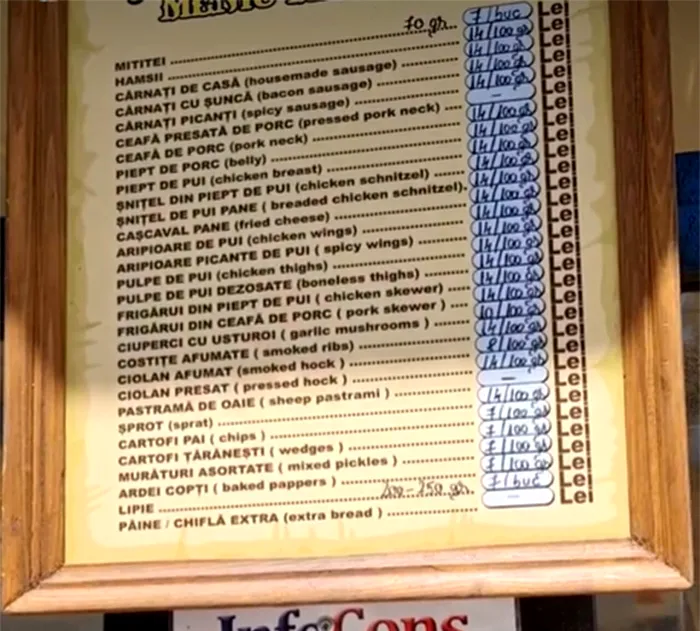 MITITEI 70 gr. 7/buc Lei
HAMSII 14/100 gr Lei
CÂRNAȚI DE CASĂ (housemade sausage) 14/100 gr Lei
CÂRNAȚI CU ȘUNCĂ (bacon sausage) 14/100 gr Lei
CÂRNAȚI PICANȚI (spicy sausage) 14/100 gr Lei
CEAFĂ PRESATĂ DE PORC (pressed pork neck) — Lei
CEAFĂ DE PORC (pork neck) 14/100 gr Lei
PIEPT DE PORC (belly) 14/100 gr Lei
PIEPT DE PUI (chicken breast) 14/100 gr Lei
ȘNIȚEL DIN PIEPT DE PUI (chicken schnitzel) 14/100 gr Lei
ȘNIȚEL DE PUI PANE ( breaded chicken schnitzel). 14/100 gr Lei
CAȘCAVAL PANE (fried cheese) 14/100 gr Lei
ARIPIOARE DE PUI (chicken wings) 14/100 gr Lei
ARIPIOARE PICANTE DE PUI ( spicy wings) 14/100 gr Lei
PULPE DE PUI (chicken thighs) 14/100 gr Lei
PULPE DE PUI DEZOSATE (boneless thighs) 14/100 gr Lei
FRIGĂRUI DIN PIEPT DE PUI ( chicken skewer) 14/100 gr Lei
FRIGĂRUI DIN CEAFĂ DE PORC ( pork skewer ) 14/100 gr Lei
CIUPERCI CU USTUROI ( garlic mushrooms ) 10/100 gr Lei
COSTIȚE AFUMATE ( smoked ribs) 14/100 gr Lei
CIOLAN AFUMAT (smoked hock ) 8/100 gr Lei
CIOLAN PRESAT ( pressed hock ) 14/100 gr Lei
PASTRAMĂ DE OAIE ( sheep pastrami ) — Lei
ȘPROT (sprat) 14/100 gr Lei
CARTOFI PAI ( chips ) 7/100 gr Lei
CARTOFI ȚĂRĂNEȘTI ( wedges ) 7/100 gr Lei
MURĂTURI ASORTATE ( mixed pickles ) 7/100 gr Lei
ARDEI COPȚI ( baked pappers ) 7/100 gr Lei
LIPIE 200-250 gr. 7/buc Lei
PÂINE / CHIFLĂ EXTRA (extra bread ) — Lei
InfoCons